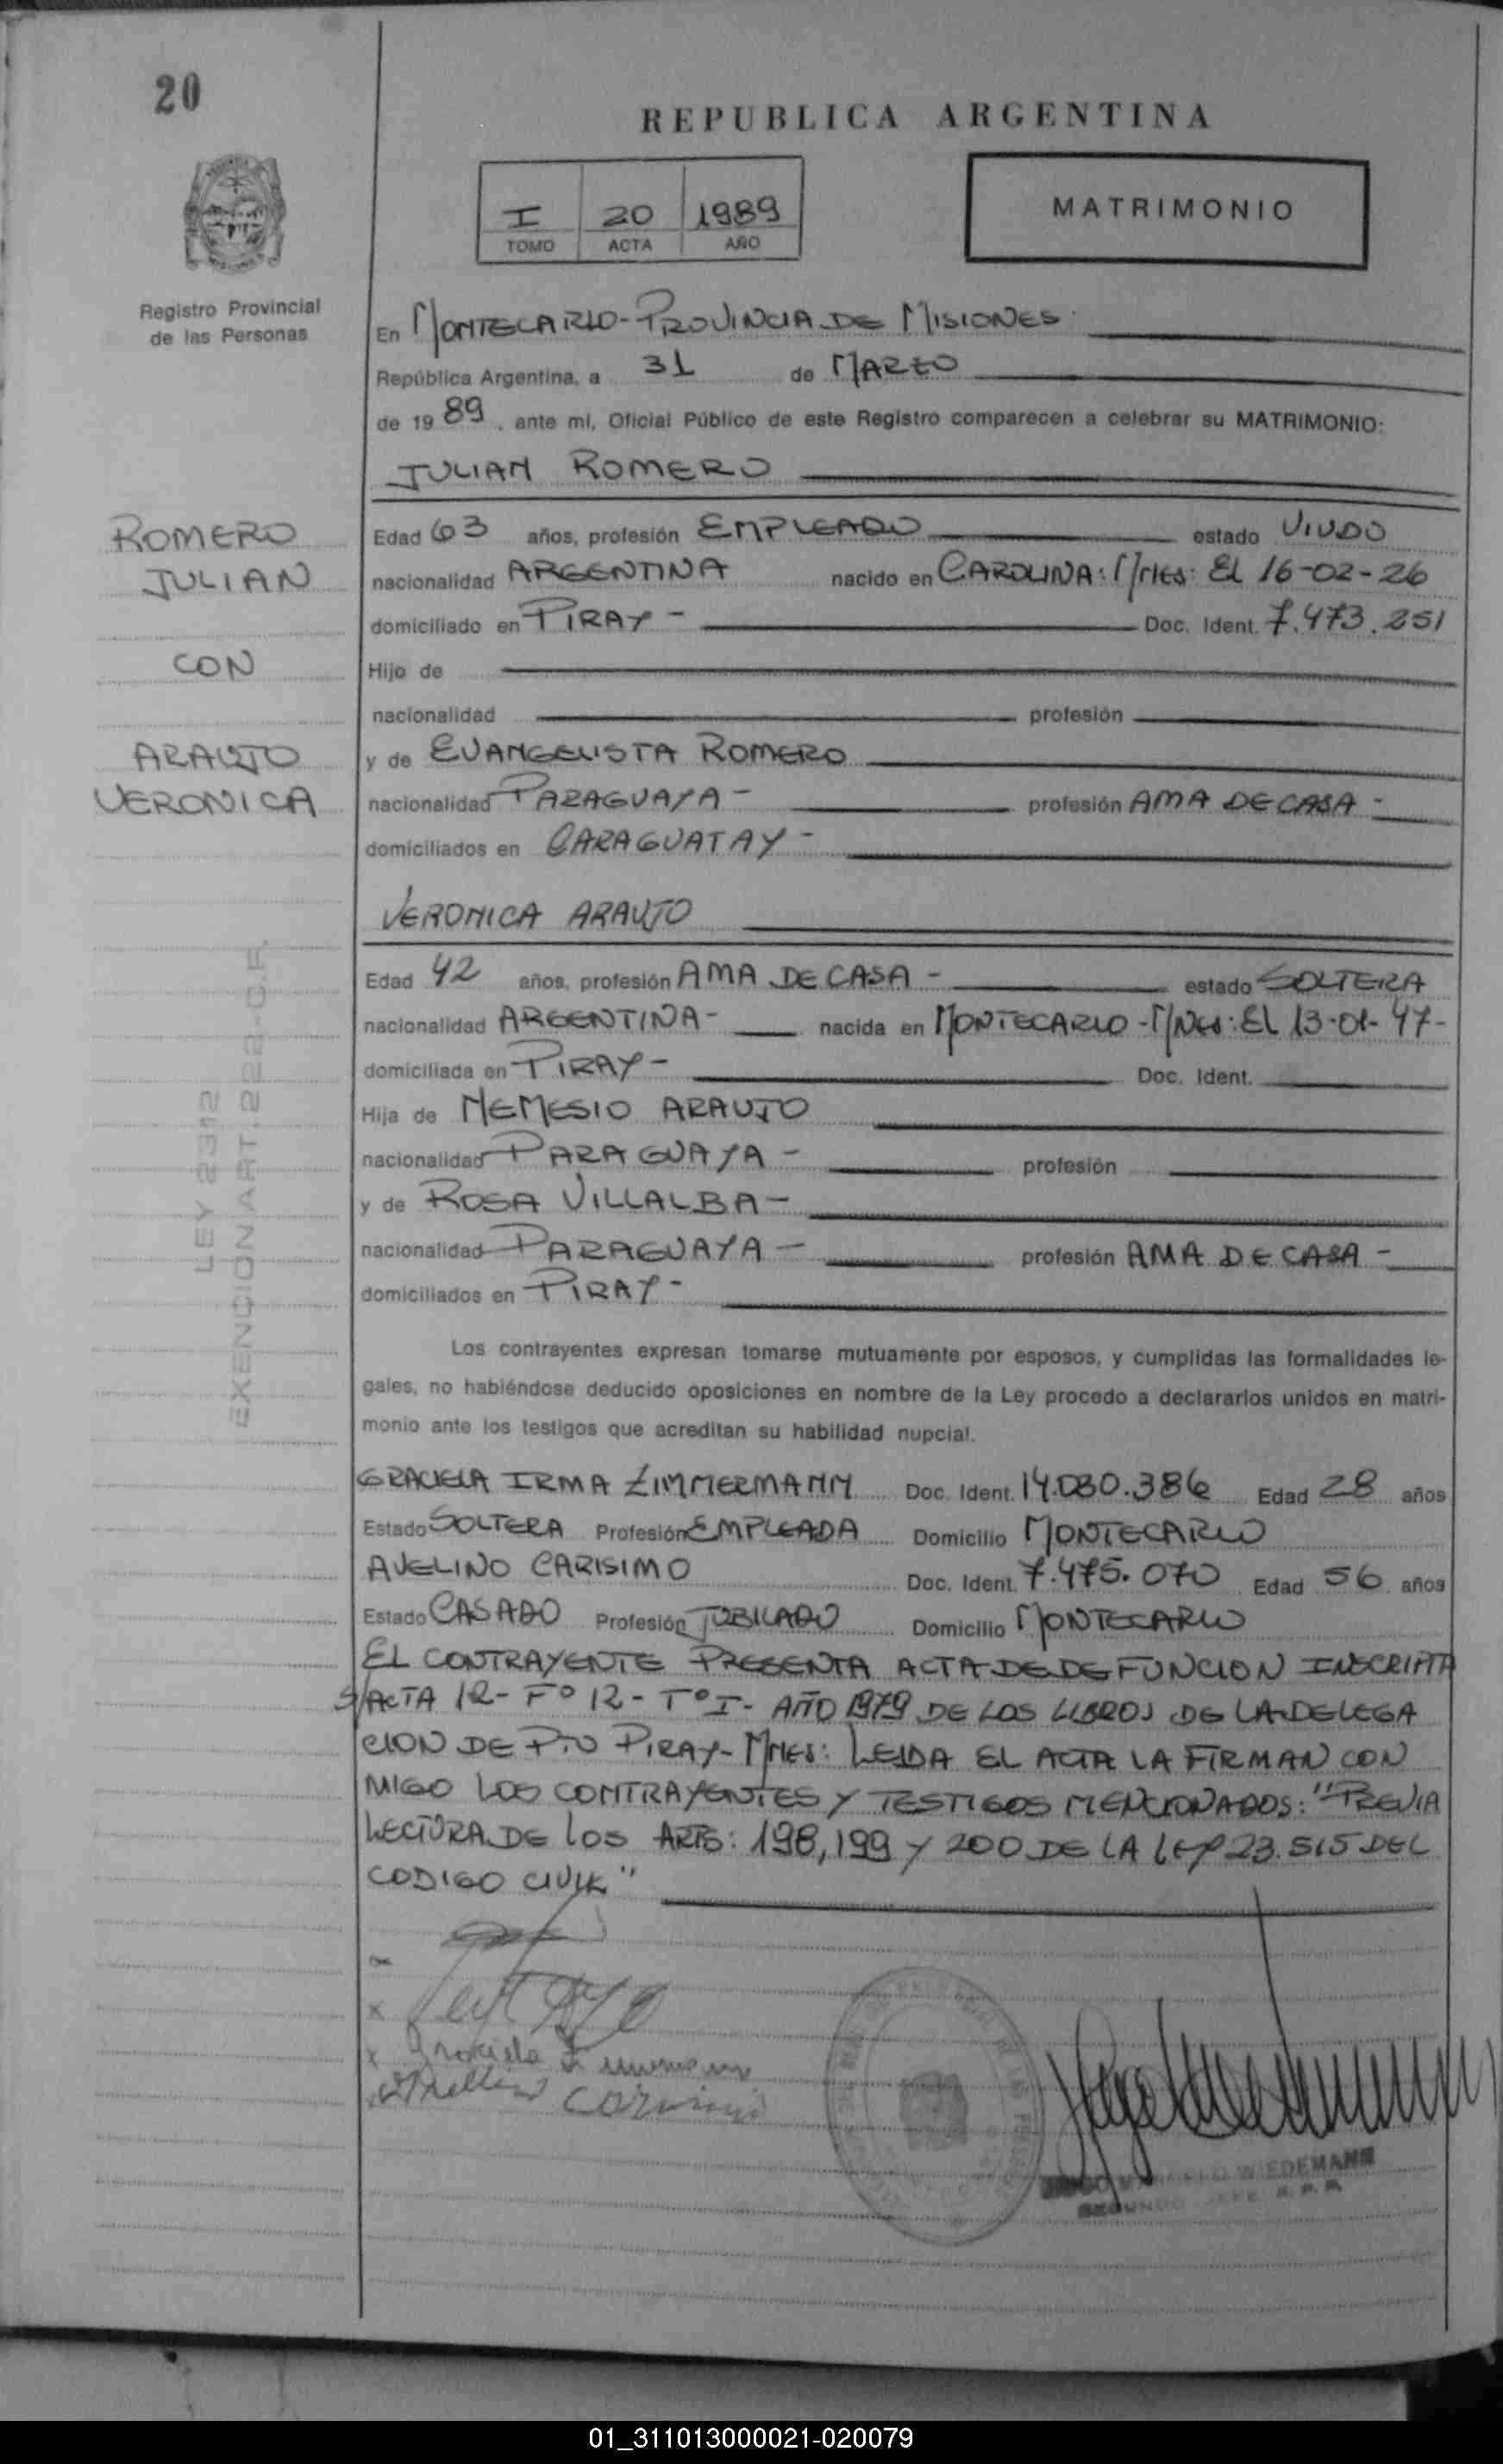 20
REPUBLICA ARGENTINA
I 20 1989
TOMO ACTA AÑO
MATRIMONIO
Registro Provincial
de las Personas
En MONTECARLO-PROVINCIA DE MISIONES
República Argentina, a 31 de MARZO
de 1989, ante mi, Oficial Público de este Registro comparecen a celebrar su MATRIMONIO:
JULIAN ROMERO
ROMERO
JULIAN
CON
ARAUJO
VERONICA
Edad 63 años, profesión EMPLEADO estado VIUDO
nacionalidad ARGENTINA nacido en CAROLINA: Mnes: EL 16-02-26
domiciliado en PIRAY - Doc. Ident. 7.473.251
Hijo de
nacionalidad profesión
y de EVANGELISTA ROMERO
nacionalidad PARAGUAYA - profesión AMA DE CASA -
domiciliados en CARAGUATAY -
VERONICA ARAUJO
Edad 42 años, profesión AMA DE CASA - estado SOLTERA
nacionalidad ARGENTINA - nacida en MONTECARLO - Mnes: EL 13-01-47-
domiciliada en PIRAY - Doc. Ident.
Hija de NEMESIO ARAUJO
nacionalidad PARAGUAYA - profesión
y de ROSA VILLALBA -
nacionalidad PARAGUAYA - profesión AMA DE CASA -
domiciliados en PIRAY -
LEY 2312
EXENCION ART. 222-C.F.
Los contrayentes expresan tomarse mutuamente por esposos, y cumplidas las formalidades le-
gales, no habiéndose deducido oposiciones en nombre de la Ley procedo a declararlos unidos en matri-
monio ante los testigos que acreditan su habilidad nupcial.
GRACIELA IRMA ZIMMERMANN Doc. Ident. 14.080.386 Edad 28 años
Estado SOLTERA Profesión EMPLEADA Domicilio MONTECARLO
AVELINO CARISIMO Doc. Ident. 7.475.070 Edad 56 años
Estado CASADO Profesión JUBILADO Domicilio MONTECARLO
EL CONTRAYENTE PRESENTA ACTA DE DEFUNCION INSCRIPTA
S/ACTA 12- Fº 12- TºI- AÑO 1979 DE LOS LIBROS DE LA DELEGA
CION DE PTO PIRAY- Mnes: LEIDA EL ACTA LA FIRMAN CON
MIGO LOS CONTRAYENTES Y TESTIGOS MENCIONADOS: "PREVIA
LECTURA DE LOS ARTS: 198, 199 Y 200 DE LA LEY 23.515 DEL
CODIGO CIVIL"
WIEDEMANN
SEGUNDO JEFE R.P.P.
01_311013000021-020079